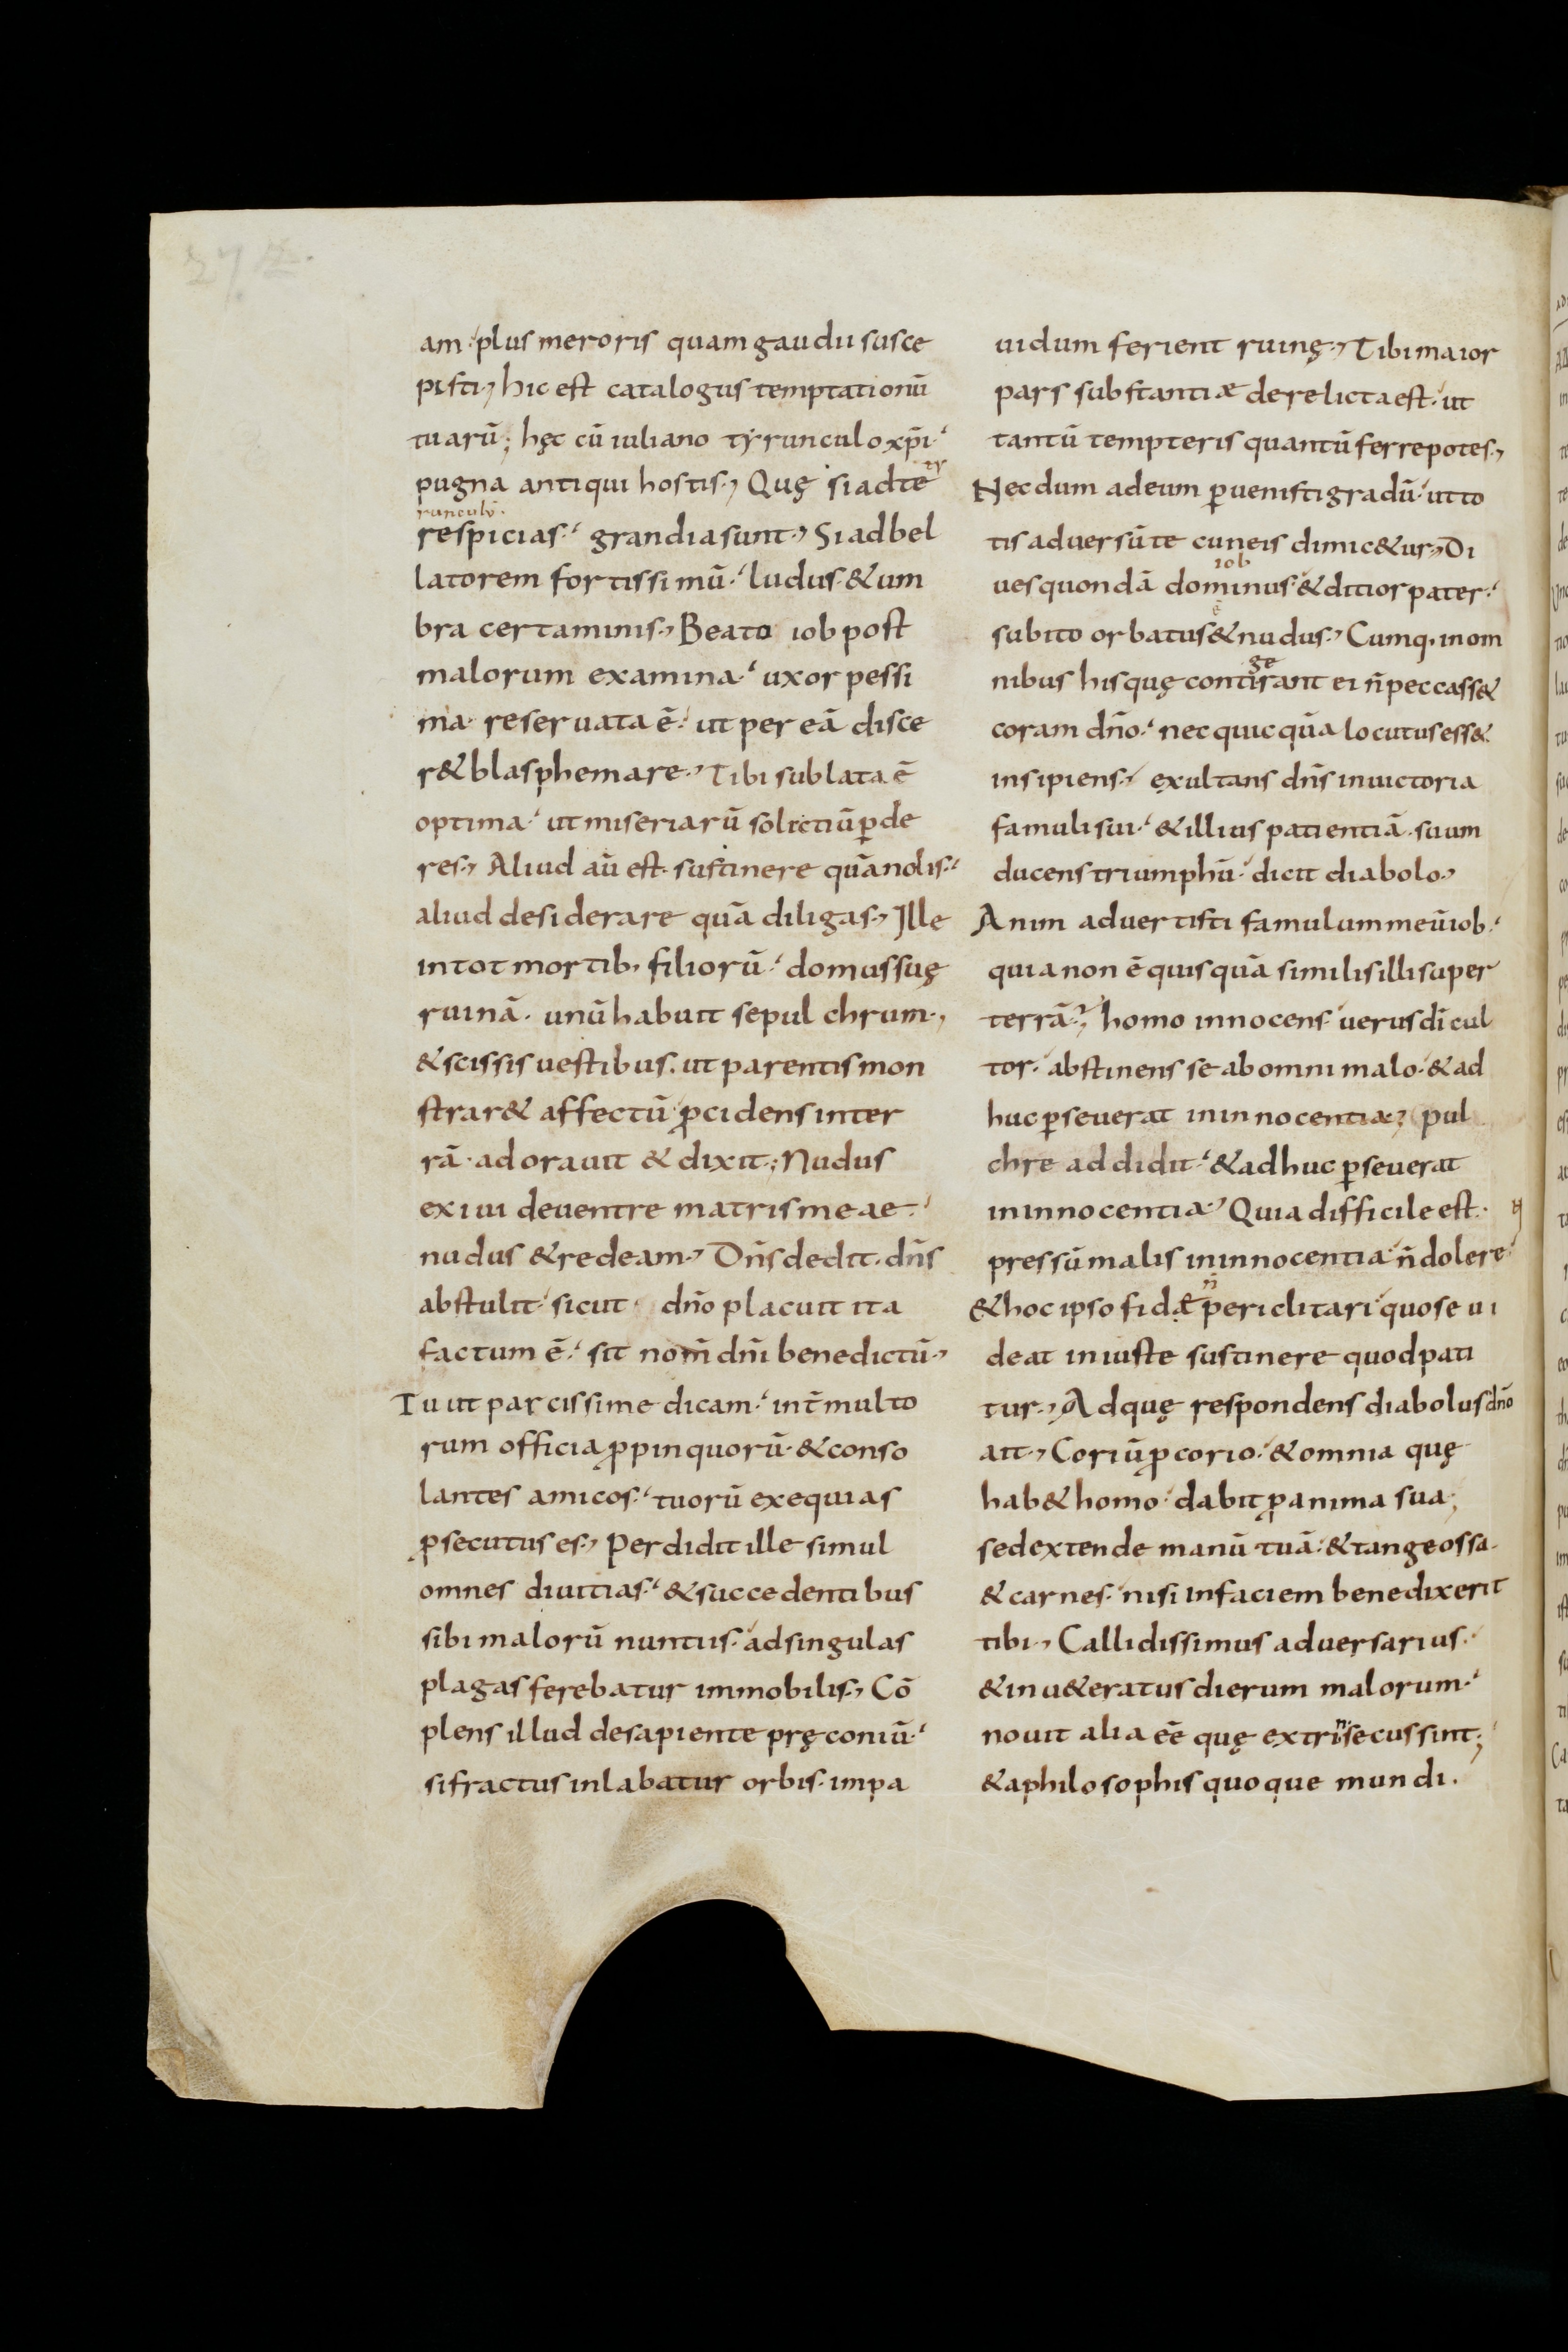 272.
am· plus meroris quam gaudii susce
pisti., hic est catalogus temptationū
tuarū; hęc cū iuliano tyrunculo xp̄i·
pugna antiqui hostis., Quę si ad te
tyrunculū·
respicias· grandia sunt., Si ad bel
latorem fortissimū· ludus & um
bra certaminis., Beato iob post
malorum examina· uxor pessi
ma reseruata ē· ut per eā disce
r& blasphemare., Tibi sublata ē
optima· ut miseriarū solictiū ꝑde
res., Aliud aū est sustinere quā nolis·
aliud desiderare quā diligas., Ille
in tot mortib, filiorū· domus suę
ruinā· unū habuit sepulchrum.,
& scissis uestibus. ut parentis mon
strar& affectū ꝓcidens in ter
rā· adorauit & dixit; Nudus
exiui de uentre matris meae·
nudus & redeam., Dn̄s dedit. dn̄s
abstulit· sicut dn̄o placuit ita
factum ē· sit nom̄ dn̄i benedictū.,
Tu ut parcissime dicam· int̄ multo
rum officia ꝓpinquorū· & conso
lantes amicos· tuorū exequias
ꝓsecutus es., Perdidit ille simul
omnes diuitias· & succedentibus
sibi malorū nuntiis· ad singulas
plagas ferebatur immobilis., Cō
plens illud de sapiente pręconiū·
si fractus inlabatur orbis· impa
uidum ferient ruinę., Tibi maior
pars substantiæ derelicta est· ut
tantū tempteris quantū ferre potes.,
Necdum ad eum ꝑuenisti gradū· ut to
tis aduersū te cuneis dimic&ur., Di
iob
ues quondā dominus & ditior pater·
subito orbatus & nudus., Cumq, in om
ge
nibus his quę contirant ei n̄ peccass&
coram dn̄o· nec quicquā locutus ess&
insipiens., exultans dn̄s in uictoria
famuli sui· & illius patientiā suum
ducens triumphū· dicit diabolo.,
Anim aduertisti famulum meū iob·
quia non ē quisquā similis illi super
terrā; homo innocens· uerus dī cul
tor· abstinens se ab omni malo· & ad
huc ꝑseuerat in innocentia; pul
chre addidit· & adhuc ꝑseuerat
in innocentia., Quia difficile est·
pressū malis in innocentia· n̄ dolere·
n̄
& hoc ipso fidæ periclitari· quo se ui
deat iniuste sustinere quod pati
tur., Ad quę respondens diabolus dn̄o
ait., Coriū ꝓ corio· & omnia quę
hab& homo· dabit ꝓ anima sua;
sed extende manū tuā· & tange ossa·
& carnes· nisi in faciem benedixerit
tibi., Callidissimus aduersarius·
& inu&eratus dierum malorum·
nouit alia eē quę extrinsecus sint;
& a philosophis quoque mundi.